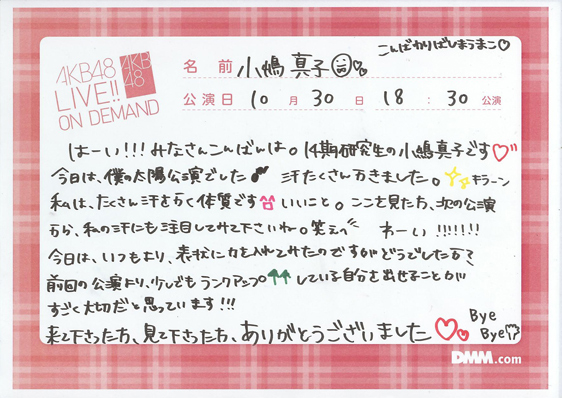 こんばかりばしまうまこ♡
AKB48
LIVE!!
ON DEMAND
AKB
48
名前 小嶋真子
公演日 10月30日 18:30公演
はーい!!!みなさんこんばんは。14期研究生の小嶋真子です♡
今日は、僕の太陽公演でした♪ 汗たくさんかきました。キラーン
私は、たくさん汗をかく体質です いいこと。ここを見た方、次の公演
から、私の汗にも注目してみて下さいね。笑えっ わーい!!!!!!
今日は、いつもより、表状に力を入れてみたのですがどうでしたか?
前回の公演より、少しでもランクアップ↑↑している自分を出せることが
すごく大切だと思っています!!!
来て下さった方、見て下さった方、ありがとうございました♡♡
Bye
Bye
DMM.com